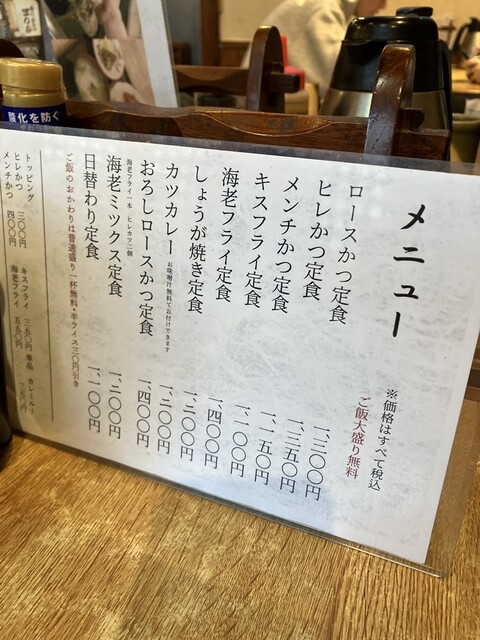 メニュー
※価格はすべて税込
ご飯大盛り無料
ロースかつ定食 一、三〇〇円
ヒレかつ定食 一、三五〇円
メンチかつ定食 一、一五〇円
キスフライ定食 一、一〇〇円
海老フライ定食 一、四〇〇円
しょうが焼き定食 一、二〇〇円
カツカレー お味噌汁無料でお付けできます 一、三〇〇円
おろしロースかつ定食 一、四〇〇円
海老フライ一本 ヒレカツ二個
海老ミックス定食 一、二〇〇円
日替わり定食 一、一〇〇円
ご飯のおかわりは普通盛り一杯無料・半ライス三〇円引き
トッピング
ヒレかつ 三〇〇円 キスフライ 三五〇円 単品 カレールー
メンチかつ 四〇〇円 海老フライ 五五〇円
酸化を防ぐ